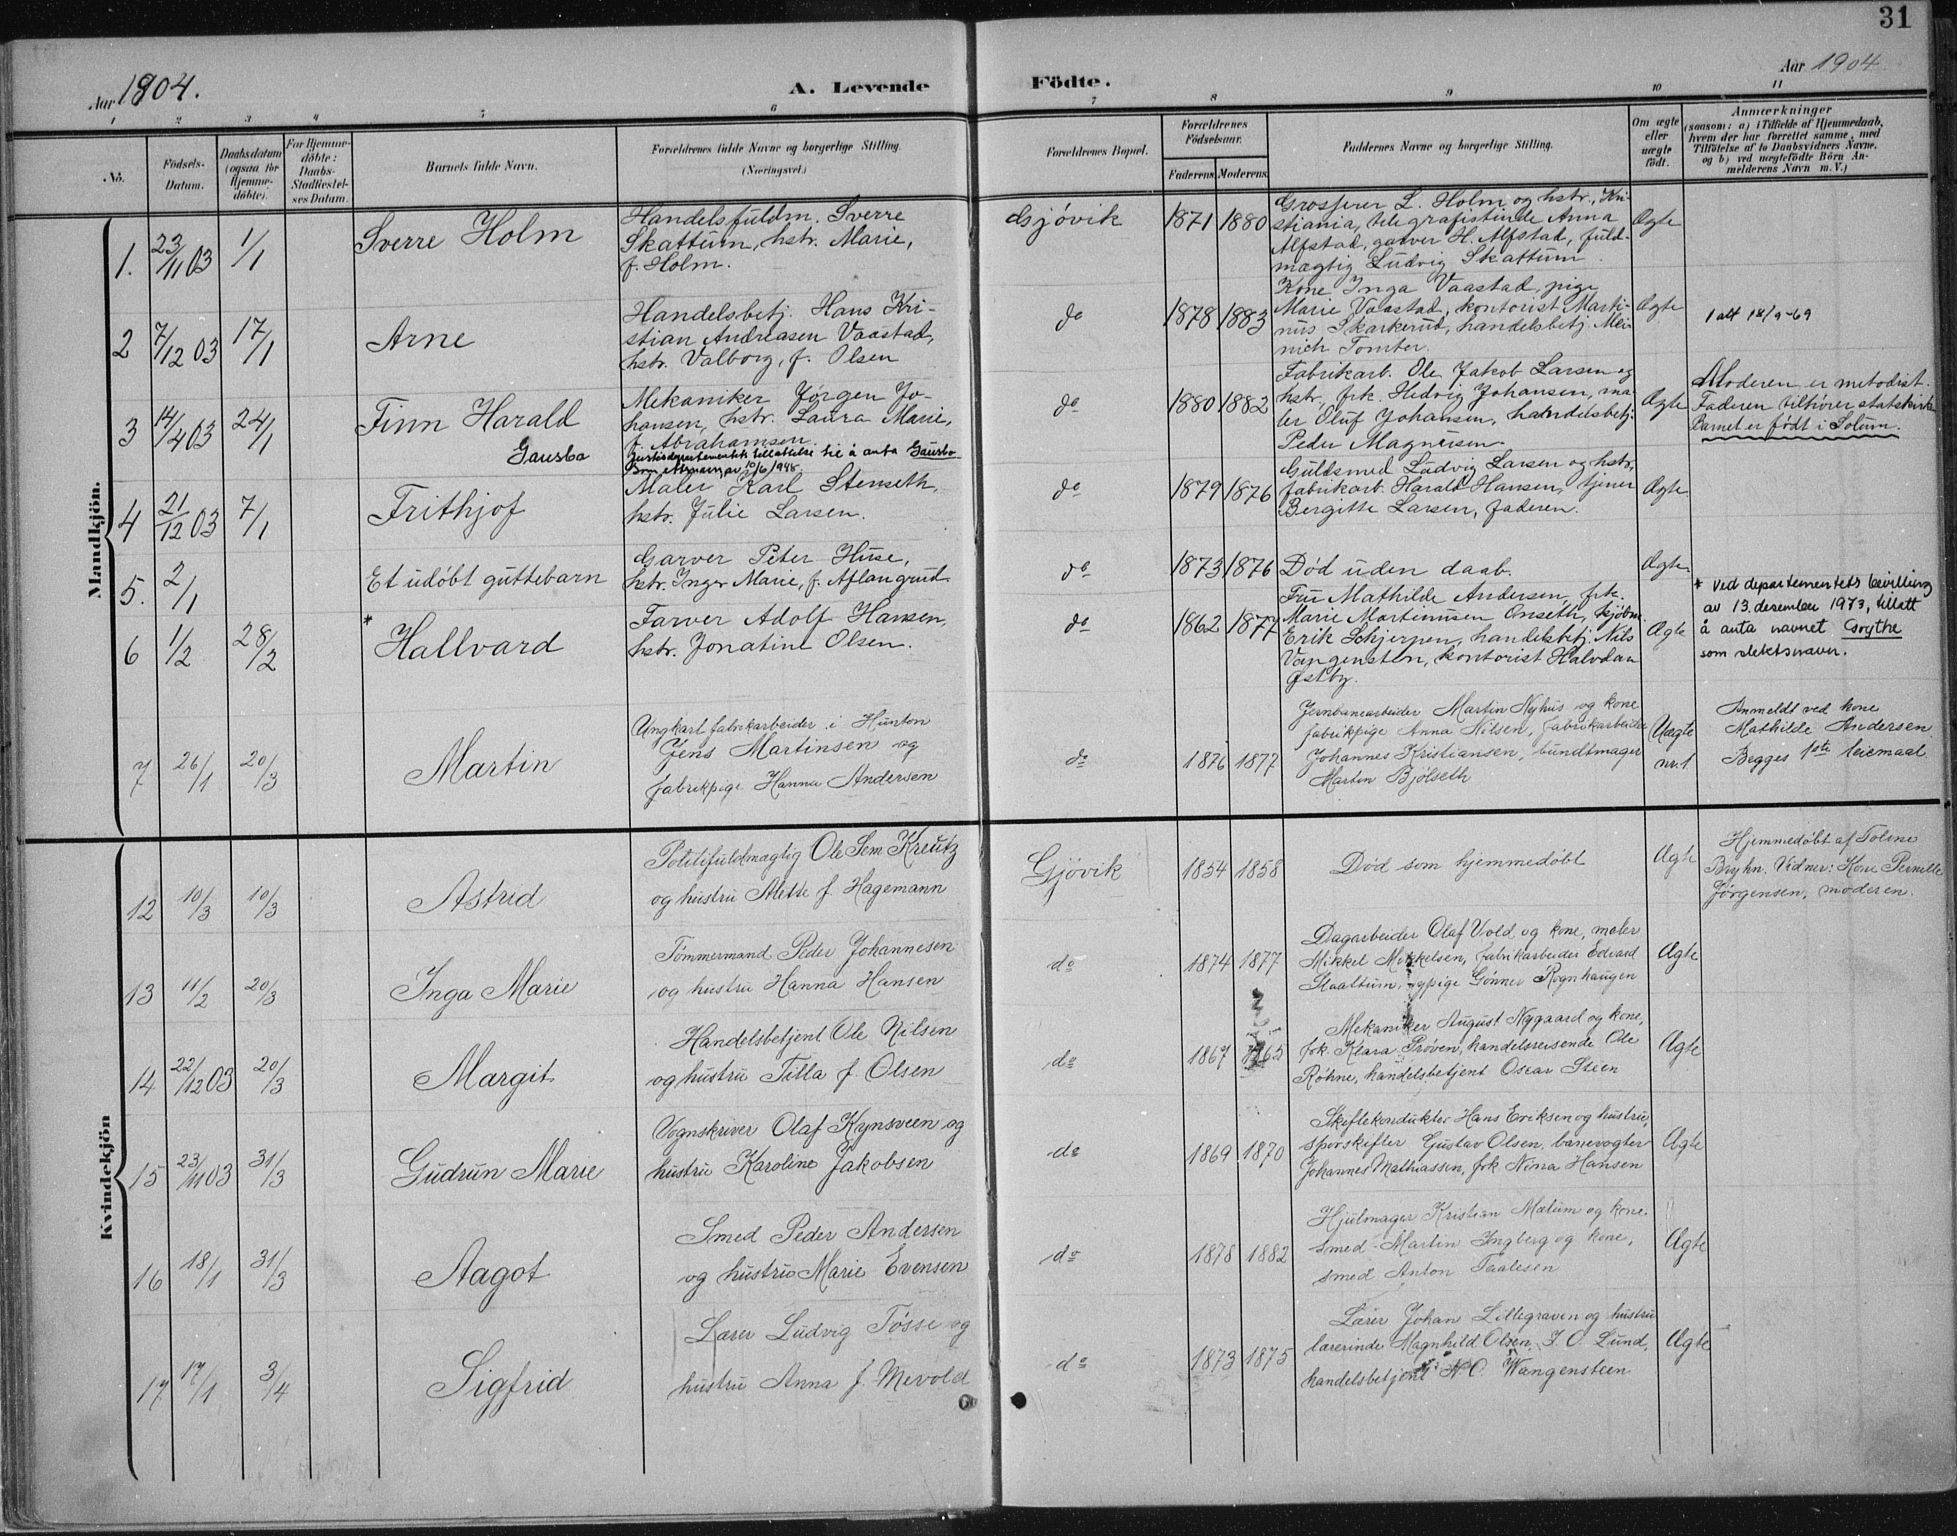 31
Aar 1904.
A. Levende Födte.
Aar 1904
1 2 3 4 5 6 7 8 9 10 11
No.
Födsels-Datum.
Daabsdatum (ogsaa for Hjemme-döbte).
For Hjemme-döbte: Daabs-Stadfæstel-ses Datum.
Barnets fulde Navn.
Forældrenes fulde Navne og borgerlige Stilling.
(Næringsvei.)
Forældrenes Bopæl.
Forældrenes Födselsaar.
Faderens. Moderens.
Faddernes Navne og borgerlige Stilling.
Om ægte eller uægte födt.
Anmærkninger
(saasom: a) i Tilfælde af Hjemmedaab,
hvem der har forrettet samme, med
Tilföielse af to Daabsvidners Navne,
og b) ved uægtefödte Börn An-
melderens Navn m. V.)
Mandkjön.
1. 23/11 03 1/1 Sverre Holm
Handelsfuldm. Sverre
Skattum, hstr. Marie,
f. Holm.
Gjövik 1871 1880
Grosserer L. Holm og hstr., Kri-
stiania, telegrafistinde Anna
Alfstad, garver H. Alfstad, fuld-
mægtig Ludvig Skattum.
Ægte
2 7/12 03 17/1 Arne
Handelsbetj. Hans Kri-
stian Andreasen Vaastad,
hstr. Valborg, f. Olsen
do 1878 1883
Kone Inga Vaastad, pige
Marie Vaastad, kontorist Marti-
nus Skarkerud, handelsbetj. Mei-
nich Tomter.
Ægte
1 att 18/9-69
3 14/4 03 24/1 Finn Harald
Gausbo
Mekaniker Jørgen Jo-
hansen, hstr. Laura Marie,
f. Abrahamsen.
Justisdepartementets tillatelse til å anta Gausbo
som etternavn av 10/6 1948.
do 1880 1882
Fabrikarb. Ole Jakob Larsen og
hstr., frk. Hedvig Johansen, ma-
ler Oluf Johansen, handelsbetj.
Peder Magnussen
Ægte
Moderen er metodist.
Faderen tilhører statskirk.
Barnet er født i Solum.
4 21/12 03 7/1 Frithjof
Maler Karl Stenseth,
hstr. Julie Larsen.
do 1879 1876
Guldsmed Ludvig Larsen og hstr.,
fabrikarb. Harald Hansen, tjener
Bergitte Larsen, faderen.
Ægte
5. 2/1 Et udøbt guttebarn
Garver Peter Huse,
hstr. Inger Marie, f. Aflangrud
do 1873 1876
Død uden daab.
Ægte
6 1/2 28/2 * Hallvard
Farver Adolf Hansen,
hstr. Jonatine Olsen.
do 1862 1877
Fru Mathilde Andersen, frk.
Marie Martinusen Onseth, kjøbm.
Erik Schjerpen, handelsbetj. Nils
Vangensten, kontorist Halvdan
Østby.
Ægte
* Ved departementets bevilling
av 13. desember 1973, tillatt
å anta navnet Grythe
som slektsnavn.
7 26/1 20/3 Martin
Ungkarl fabrikarbeider i Hunton
Jens Martinsen og
fabrikpige Hanna Andersen
do 1876 1877
Jernbanearbeider Martin Nyhus og kone
fabrikpige Anna Nilsen, fabrikarbeider
Johannes Kristiansen, bundtmager
Martin Bjölseth
Uægte
nr. 1
Anmeldt ved kone
Mathilde Andersen
Begges 1ste leiemaal
Kvindekjön
12 10/3 10/3 Astrid
Politifuldmægtig Ole Sem Kreutz
og hustru Alette f. Hagemann
Gjövik 1854 1858
Död som hjemmedøbt
Ægte
Hjemmedøbt af Toline
Bryhn. Vidner: Kone Pernille
Jørgensen, moderen.
13 11/2 20/3 Inga Marie
Tömmermand Peder Johannesen
og hustru Hanna Hansen
do 1874 1877
Dagarbeider Olaf Vold og kone, maler
Mikkel Mikkelsen, fabrikarbeider Edvard
Staaltum, sypige Gönner Rognhaugen
Ægte
14 22/12 03 20/3 Margit
Handelsbetjent Ole Nilsen
og hustru Tilla f. Olsen
do 1867 1865
Mekaniker August Nygaard og kone,
frk. Klara Prøven, handelsreisende Ole
Røhne, handelsbetjent Oscar Steen
Ægte
15 23/11 03 31/3 Gudrun Marie
Vognskriver Olaf Kynsveen og
hustru Karoline Jakobsen
do 1869 1870
Skiftekonduktør Hans Eriksen og hustru,
sporskifter Gustav Olsen, banevogter
Johannes Mathiassen, frk. Nina Hansen
Ægte
16 18/1 31/3 Aagot
Smed Peder Andersen
og hustru Marie Evensen
do 1878 1882
Hjulmager Kristian Mælum og kone
smed Martin Ingberg og kone,
smed Anton Paalesen
Ægte
17 17/1 3/4 Sigfrid
Lærer Ludvig Tösse og
hustru Anna f. Mevold
do 1873 1875
Lærer Johan Lillegraven og hustru
lærerinde Magnhild Olsen, J. O. Lund,
handelsbetjent N. O. Wangensteen
Ægte